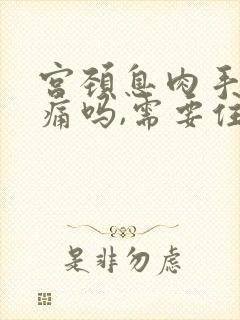 宫颈息肉手
痛吗,需要住
是非勿虑